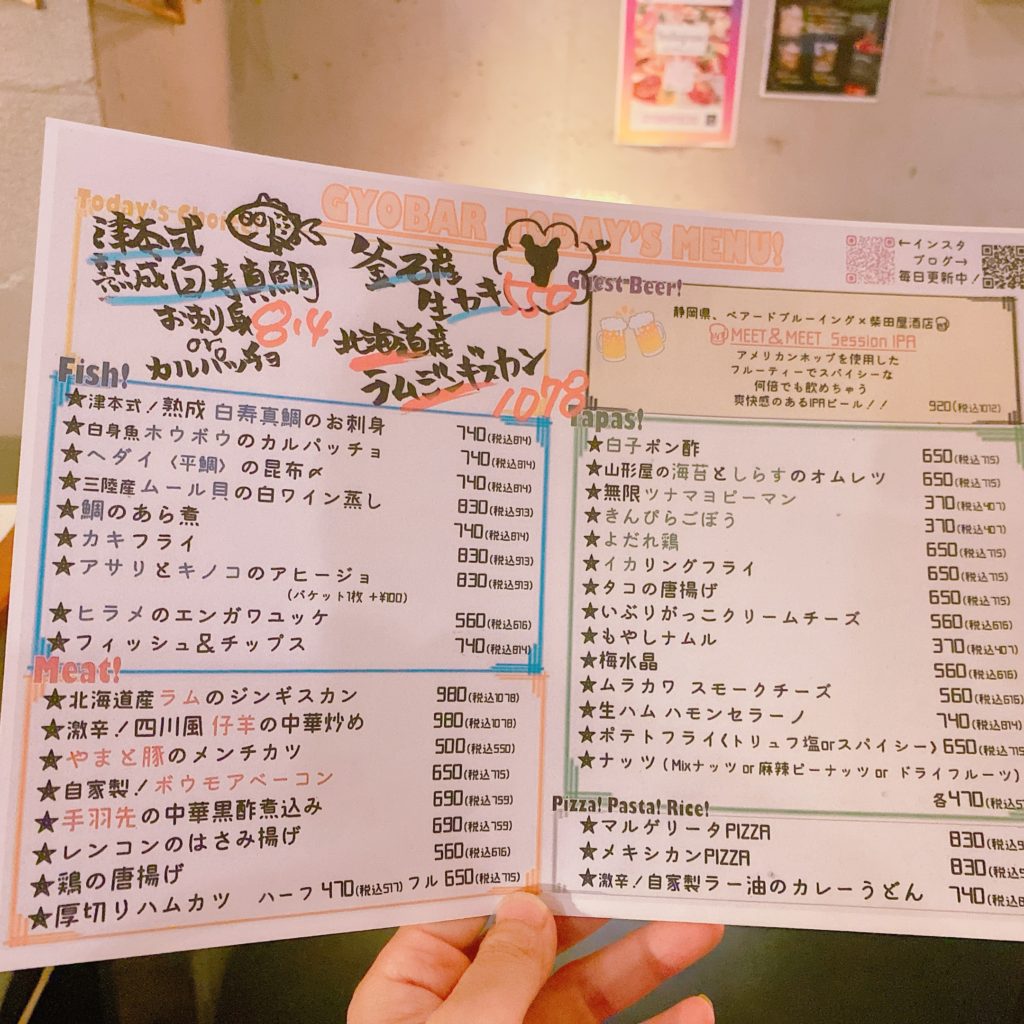 GYOBAR TODAY'S MENU!
Today's Choice
津本式
熟成白寿真鯛
お刺身
or
カルパッチョ
814
釜石産
生カキ
550
北海道産
ラムジンギスカン
1078
←インスタ
ブログ→
毎日更新中!
Fish!
★津本式!熟成 白寿真鯛のお刺身 740(税込814)
★白身魚ホウボウのカルパッチョ 740(税込814)
★ヘダイ〈平鯛〉の昆布〆 740(税込814)
★三陸産ムール貝の白ワイン蒸し 830(税込913)
★鯛のあら煮 740(税込814)
★カキフライ 830(税込913)
★アサリとキノコのアヒージョ 830(税込913)
(バケット1枚 +¥100)
★ヒラメのエンガワユッケ 560(税込616)
★フィッシュ&チップス 740(税込814)
Meat!
★北海道産ラムのジンギスカン 980(税込1078)
★激辛!四川風 仔羊の中華炒め 980(税込1078)
★やまと豚のメンチカツ 500(税込550)
★自家製!ボウモアベーコン 650(税込715)
★手羽先の中華黒酢煮込み 690(税込759)
★レンコンのはさみ揚げ 690(税込759)
★鶏の唐揚げ 560(税込616)
★厚切りハムカツ ハーフ 470(税込517) フル 650(税込715)
Guest Beer!
静岡県、ベアードブルーイング×柴田屋酒店
MEET&MEET Session IPA
アメリカンホップを使用した
フルーティーでスパイシーな
何倍でも飲めちゃう
爽快感のあるIPAビール!! 920(税込1012)
Tapas!
★白子ポン酢 650(税込715)
★山形屋の海苔としらすのオムレツ 650(税込715)
★無限ツナマヨピーマン 370(税込407)
★きんぴらごぼう 370(税込407)
★よだれ鶏 650(税込715)
★イカリングフライ 650(税込715)
★タコの唐揚げ 650(税込715)
★いぶりがっこクリームチーズ 560(税込616)
★もやしナムル 370(税込407)
★梅水晶 560(税込616)
★ムラカワ スモークチーズ 560(税込616)
★生ハム ハモンセラーノ 740(税込814)
★ポテトフライ(トリュフ塩orスパイシー) 650(税込715
★ナッツ(Mixナッツ or 麻辣ピーナッツ or ドライフルーツ)
各470(税込5
Pizza! Pasta! Rice!
★マルゲリータPIZZA 830(税込9
★メキシカンPIZZA 830(税込
★激辛!自家製ラー油のカレーうどん 740(税込8